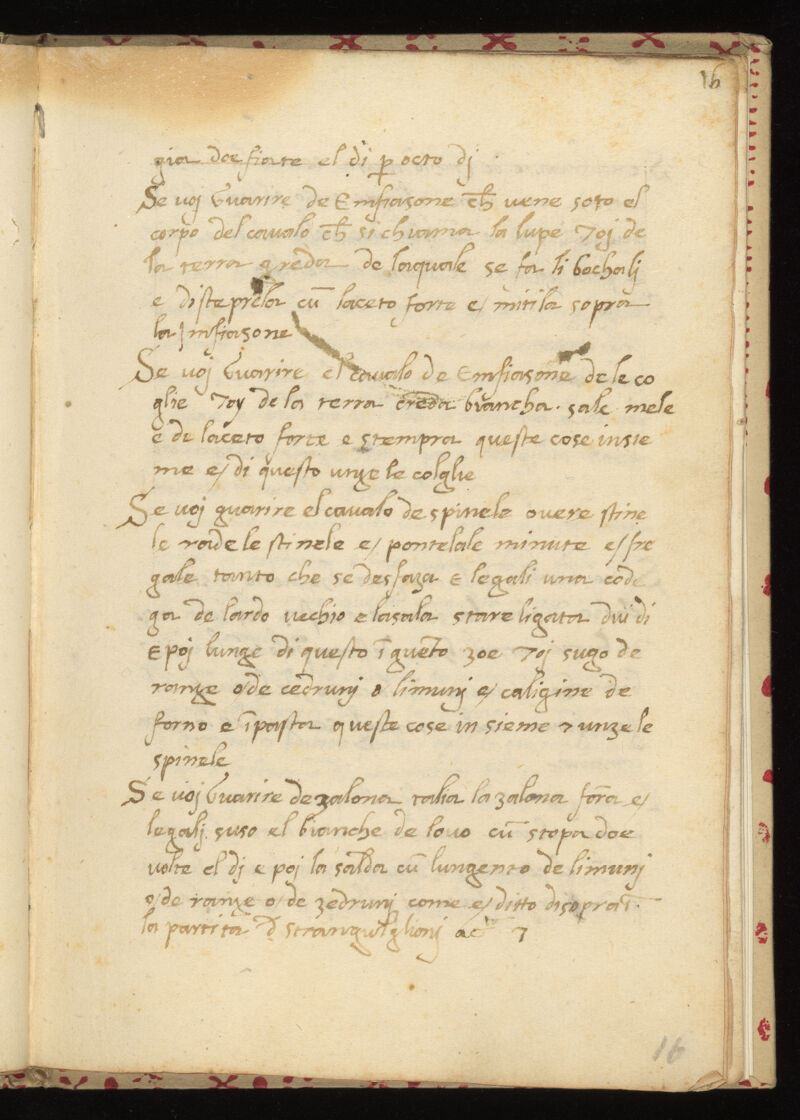 16
gia doe fiate el di p̱ octo dj
Se voj Guarire de Emfiasone ch̄ vene soto el
corpo del cavalo ch̄ si chiama la lupe Toj de
la terra greda de laquale se fa li bochalj
e disteprela cū laceto forte e mitila sopra
la Jmfiasone
Se voj Guarire el cavalo de Emfiasone de le co
glie Toy de la terra creda biancha. sale mele
e de laceto forte e stempra queste cose insie
me e di questo unze le colglie
Se voj guarire el cavalo de spinele overe stine
le rade le stinele e pontelale minute e fre
gale tanto che se desfaza E legali una code
ga de lardo vechio e lasala stare ligata dui di
E poj lunge di questo ī gueto zoe Toj sugo de
ranze o de cedrunj o limunj e caligine de
forno e ī pasta queste cose in sieme 7 unze le
spinele
Se voj Guarire de zalona talia la zalona fora e
legalj suso el bianche de lovo cū stopa doe
volte el dj e poj la salda cū lungento de limunj
o de ranze o de zedrunj come e ditto disopra ī
la partita d̄ stranguglionj ac 7
16